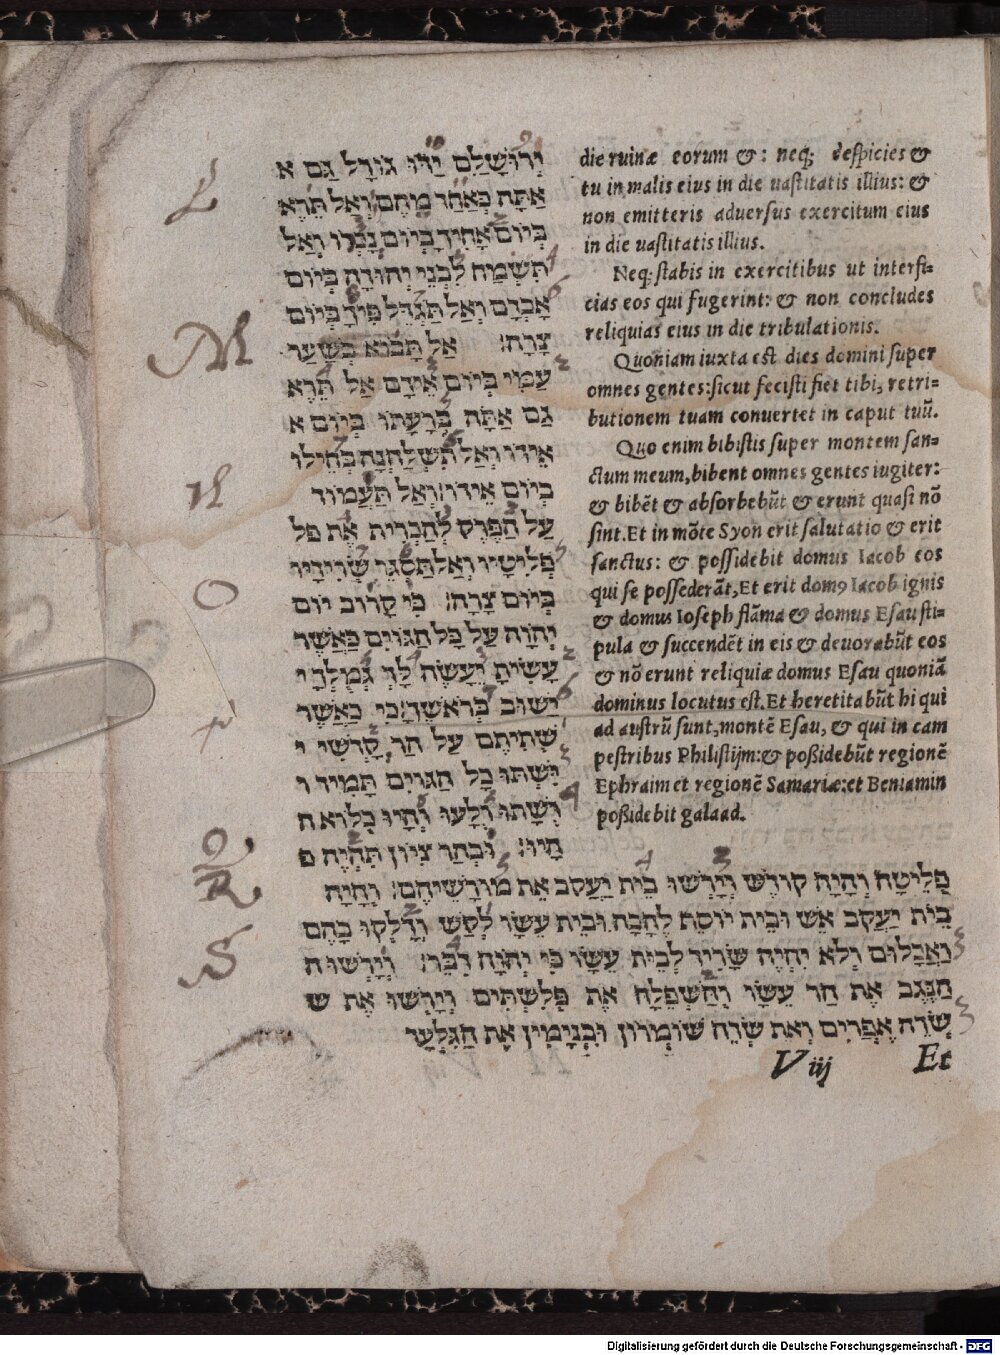 ירושלם ידו גורל גם א
אתה כאחד מהם׃ ואל תרא
ביום אחיך ביום נכרו ואל
תשמח לבני יהודה ביום
אבדם ואל תגדל פיך ביום
צרה׃ אל תבוא בשער
עמי ביום אידם אל תרא
גם אתה ברעתו ביום א
אידו ואל תשלחנה בחילו
ביום אידו׃ ואל תעמוד
על הפרק להכרית את פל
פליטיו ואל תסגר שרידיו
ביום צרה׃ כי קרוב יום
יהוה על כל הגוים כאשר
עשית יעשה לך גמלך י
ישוב בראשך׃ כי כאשר
שתיתם על הר קדשי י
ישתו כל הגוים תמיד ו
ושתו ולעו והיו כלוא ה
היו׃ ובהר ציון תהיה פ
die ruinæ eorum &: neq; despicies &
tu in malis eius in die uastitatis illius: &
non emitteris aduersus exercitum eius
in die uastitatis illius.
Neq; stabis in exercitibus ut interfi=
cias eos qui fugerint: & non concludes
reliquias eius in die tribulationis.
Quoniam iuxta est dies domini super
omnes gentes: sicut fecisti fiet tibi, retri=
butionem tuam conuertet in caput tuũ.
Quo enim bibistis super montem san=
ctum meum, bibent omnes gentes iugiter:
& bibẽt & absorbebũt & erunt quasi nõ
sint. Et in mõte Syon erit saluatatio & erit
sanctus: & possidebit domus Iacob eos
qui se possederãt, Et erit domꝰ Iacob ignis
& domus Ioseph flãma & domus Esau sti=
pula & succendẽt in eis & deuorabũt eos
& nõ erunt reliquiæ domus Esau quoniã
dominus locutus est. Et heretitabũt hi qui
ad austrũ sunt, montẽ Esau, & qui in cam
pestribus Philistijm: & poßidebũt regionẽ
Ephraim et regionẽ Samariæ: et Beniamin
poßidebit galaad.
פליטה והיה קודש וירשו בית יעקב את מורשיהם׃ והיה
בית יעקב אש ובית יוסף להבה ובית עשו לקש ודלקו בהם
ואכלום ולא יהיה שריד לבית עשו כי יהוה דבר׃ וירשו ה
הנגב את הר עשו והשפלה את פלשתים וירשו את ש
שדה אפרים ואת שדה שומרון ובנימין את הגלער
V iij Et
L
M
N
O
P
Q
R
S
Digitalisierung gefördert durch die Deutsche Forschungsgemeinschaft - DFG